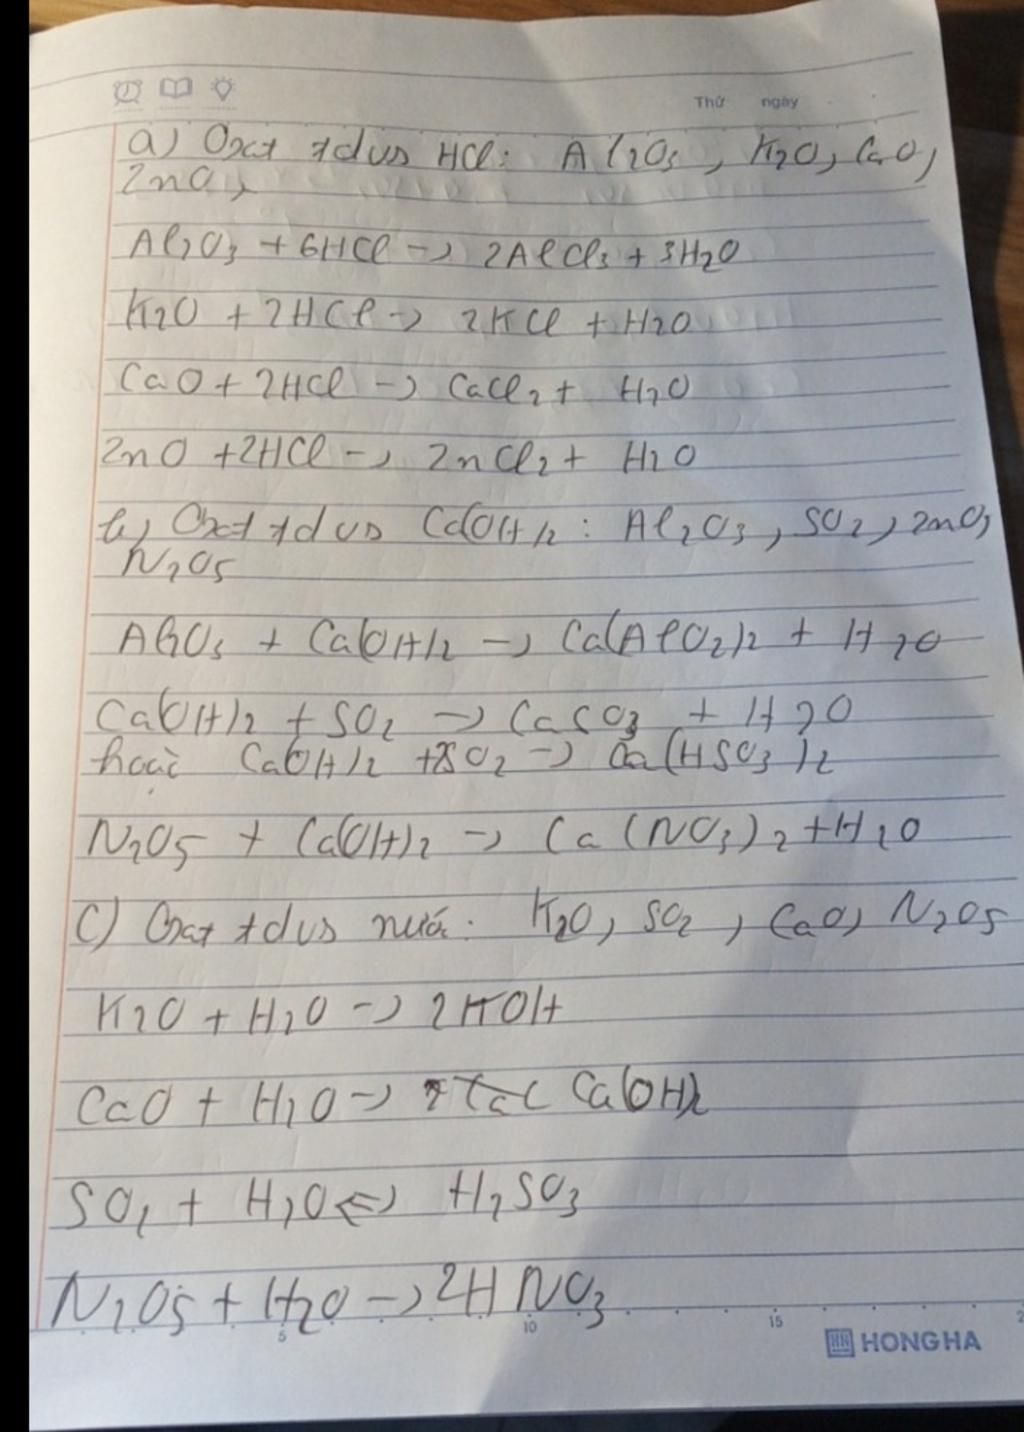 Thứ ngày
a) Oxit tdvs HCl: Al2O3, K2O, CaO,
ZnO,
Al2O3 + 6HCl -> 2AlCl3 + 3H2O
K2O + 2HCl -> 2KCl + H2O
CaO + 2HCl -> CaCl2 + H2O
ZnO + 2HCl -> ZnCl2 + H2O
b) Oxit tdvs Ca(OH)2: Al2O3, SO2, ZnO,
N2O5
Al2O3 + Ca(OH)2 -> Ca(AlO2)2 + H2O
Ca(OH)2 + SO2 -> CaSO3 + H2O
hoặc Ca(OH)2 + 2SO2 -> Ca(HSO3)2
N2O5 + Ca(OH)2 -> Ca(NO3)2 + H2O
c) Oxit tdvs nước: K2O, SO2, CaO, N2O5
K2O + H2O -> 2KOH
CaO + H2O -> Ca(OH)2
SO2 + H2O <=> H2SO3
N2O5 + H2O -> 2HNO3
5 10 15
HONG HA